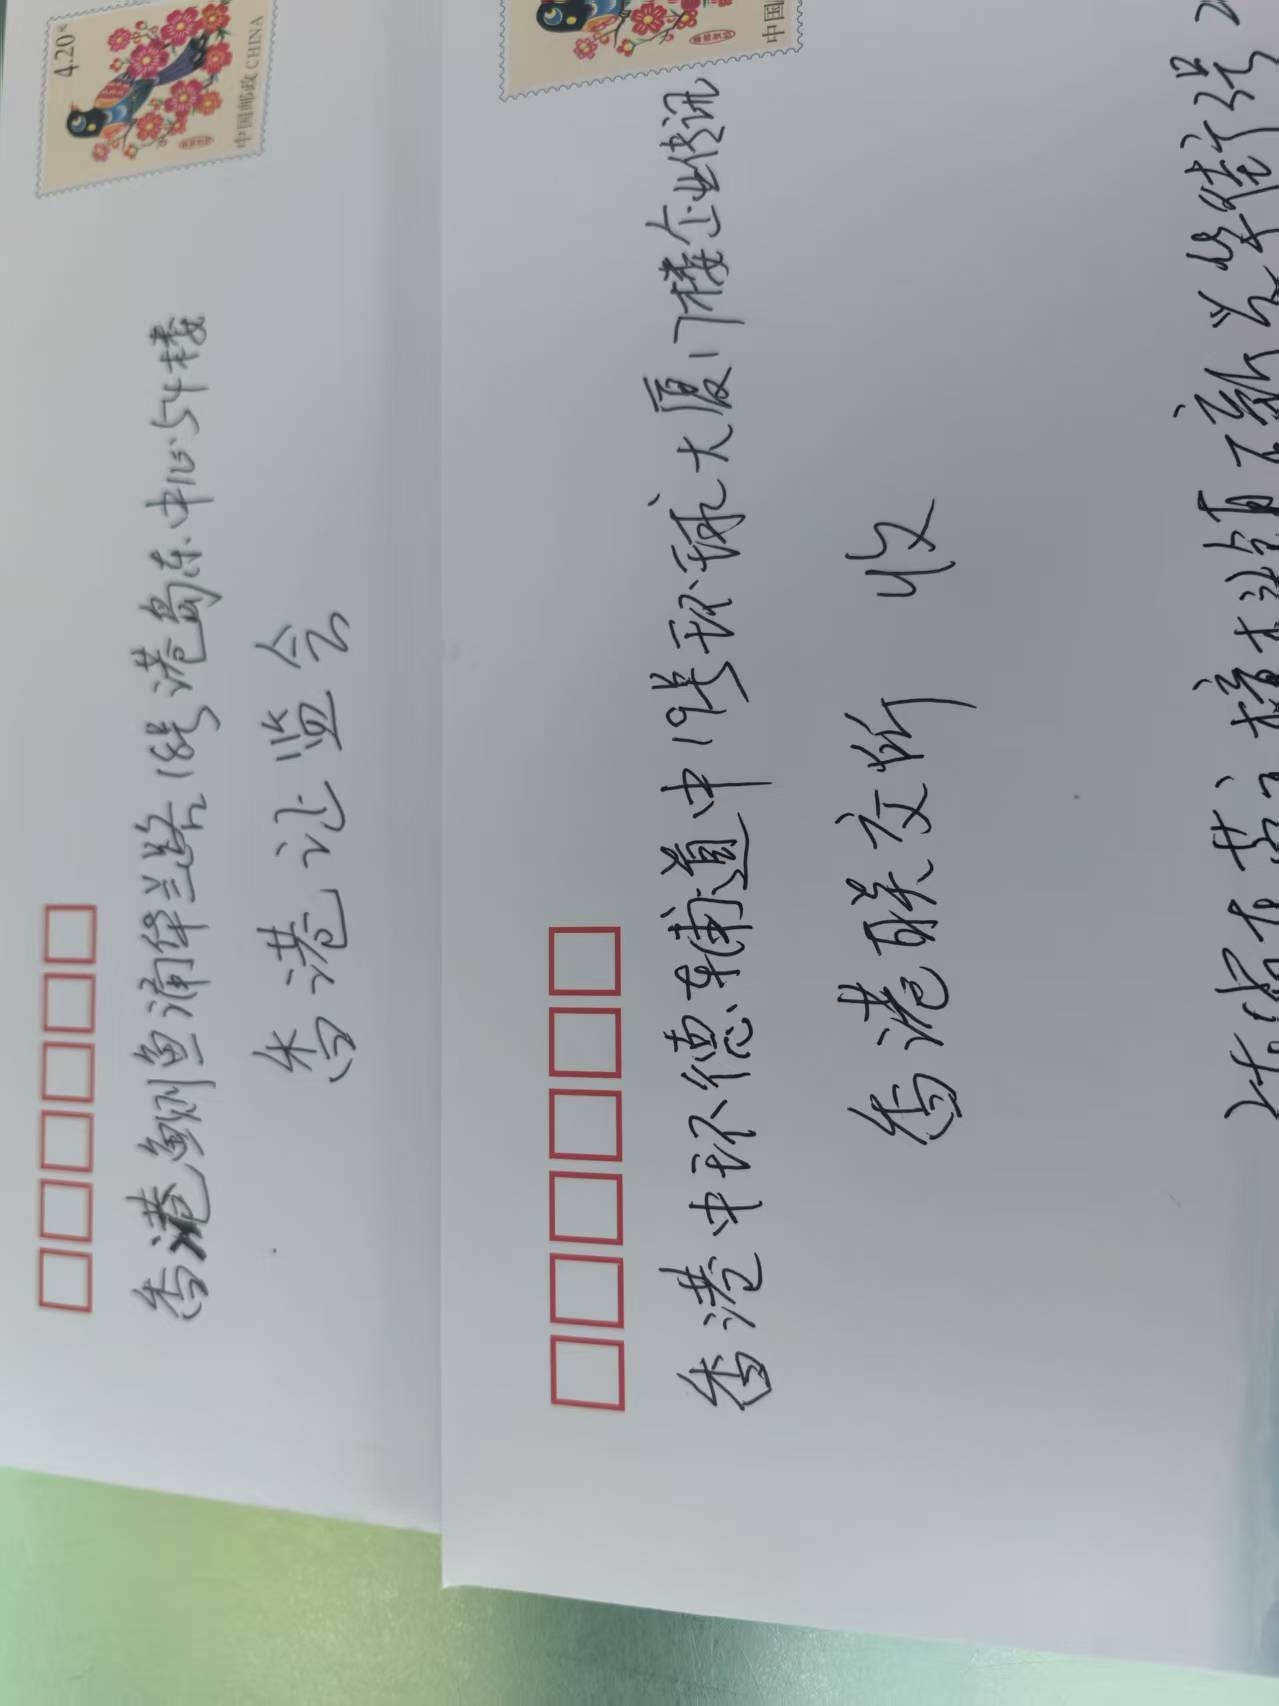 4.20元
中国邮政 CHINA
香港鲗鱼涌华兰路18号港岛东中心54楼
香港证监会
中国
香港中环德辅道中19号环球大厦17楼企业传讯
香港联交所 收